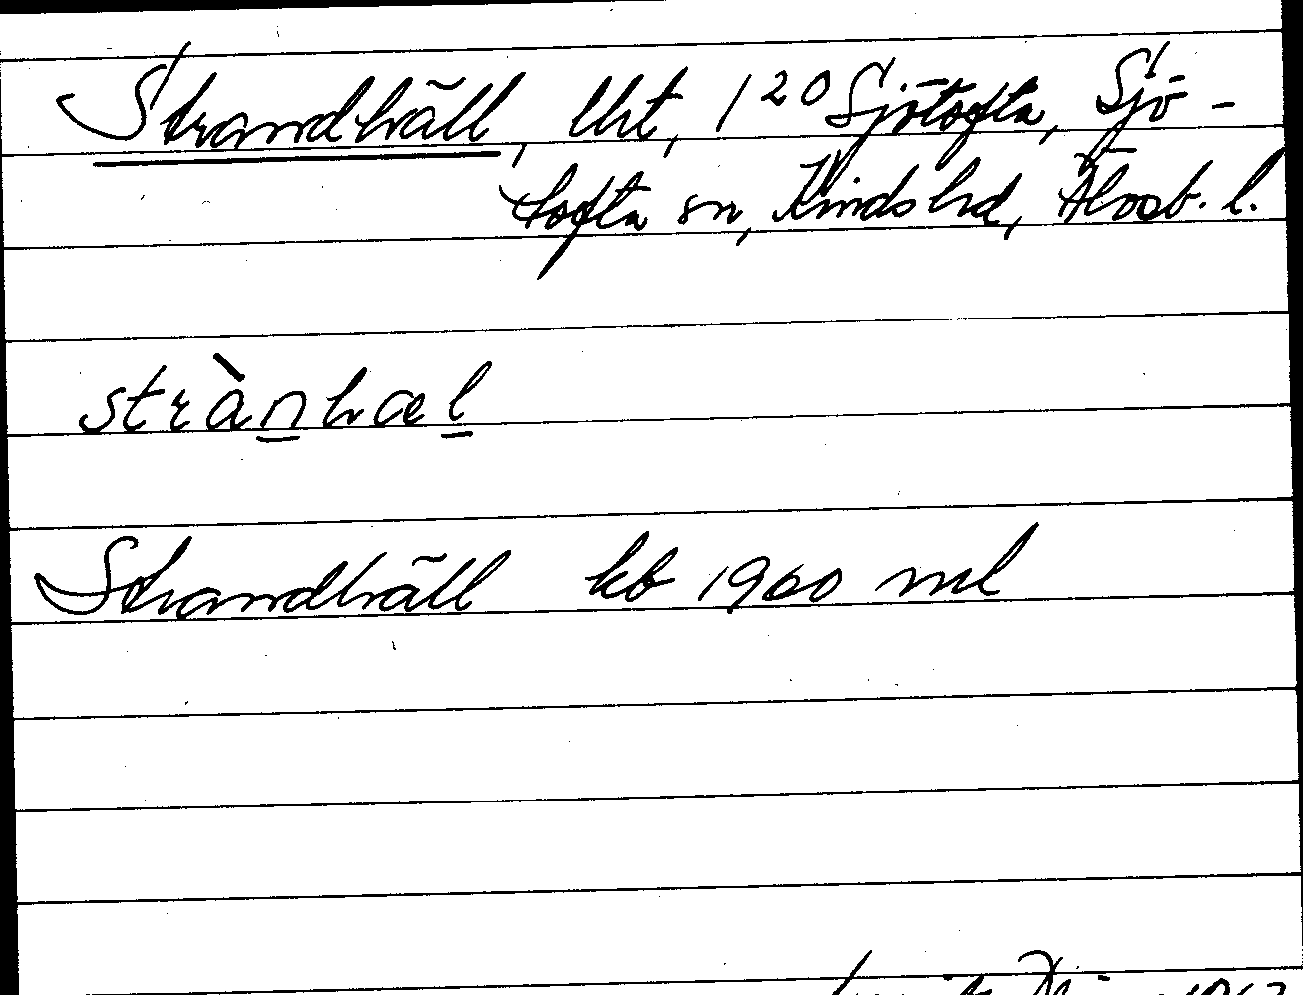 Strandhäll, lht, 1²⁰ Sjötofta, Sjö-
tofta sn, Kinds hd, Älvsb. l.
stràn̲hæl̲
Strandhäll kb 1960 ml